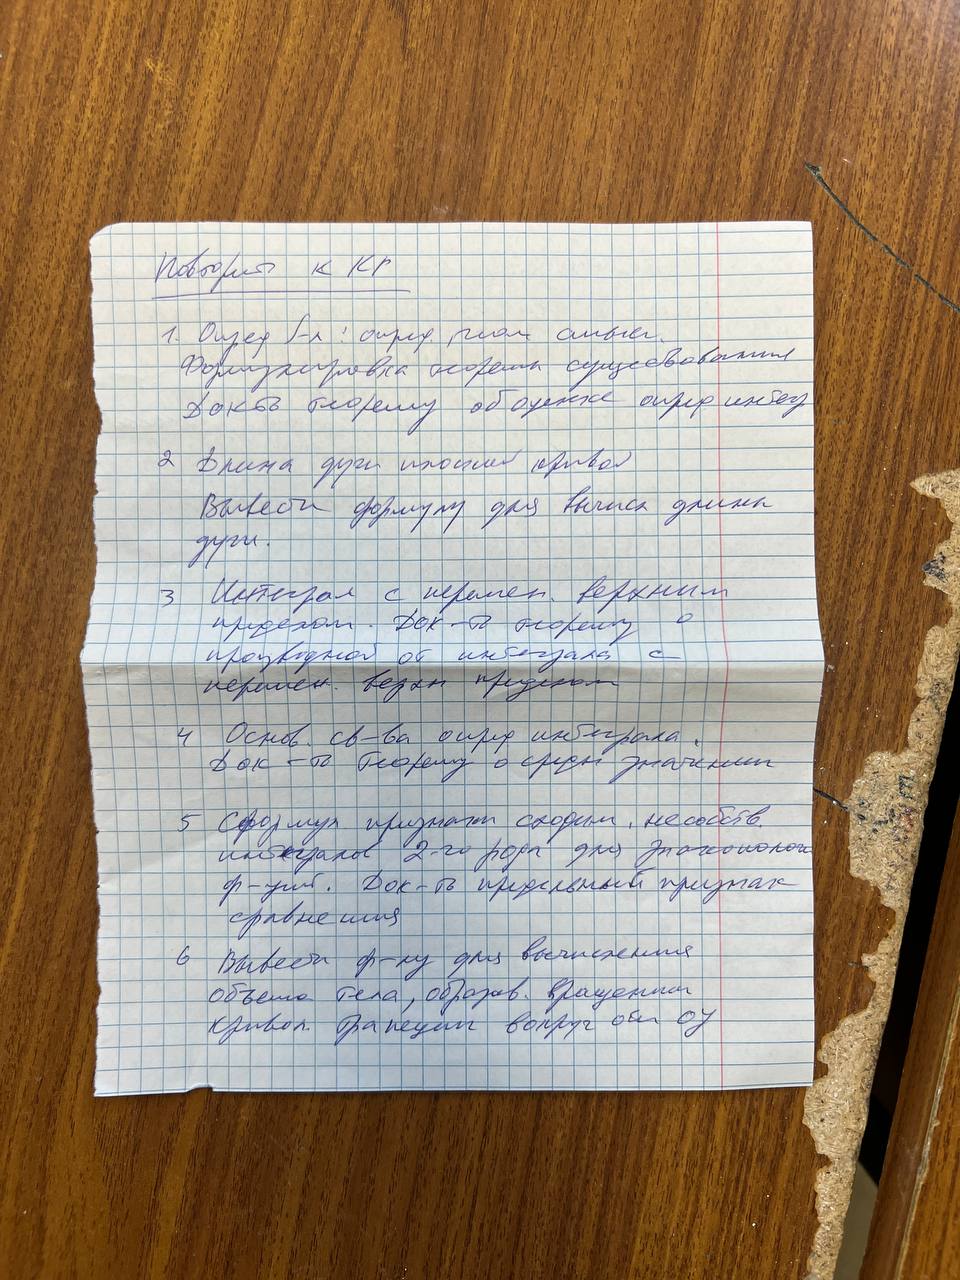 Повторить к КР
1. Опред ∫-л: опред, геом смысл.
Формулировка теоремы существования
Док-ть теорему об оценке опред интегр
2 Длина дуги плоской кривой
Вывести формулу для вычисл длины
дуги.
3 Интеграл с перемен. верхним
пределом. Док-ть теорему о
производной от интеграла с
перемен. верхн пределом
4 Основ. св-ва опред интеграла.
Док-ть теорему о средн значении
5 Сформул. признаки сходим. несобств.
интегралов 2-го рода для знакополож
ф-ций. Док-ть предельный признак
сравнения
6 Вывести ф-лу для вычисления
объема тела, образов. вращением
кривол. трапеции вокруг оси OY